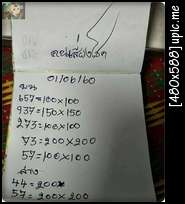 01/06/60
บน
657=100×100
937=150×150
273=100×100
73=200×200
57=100×100
ล่าง
44=200×
57=200×200
[480x588] upic.me